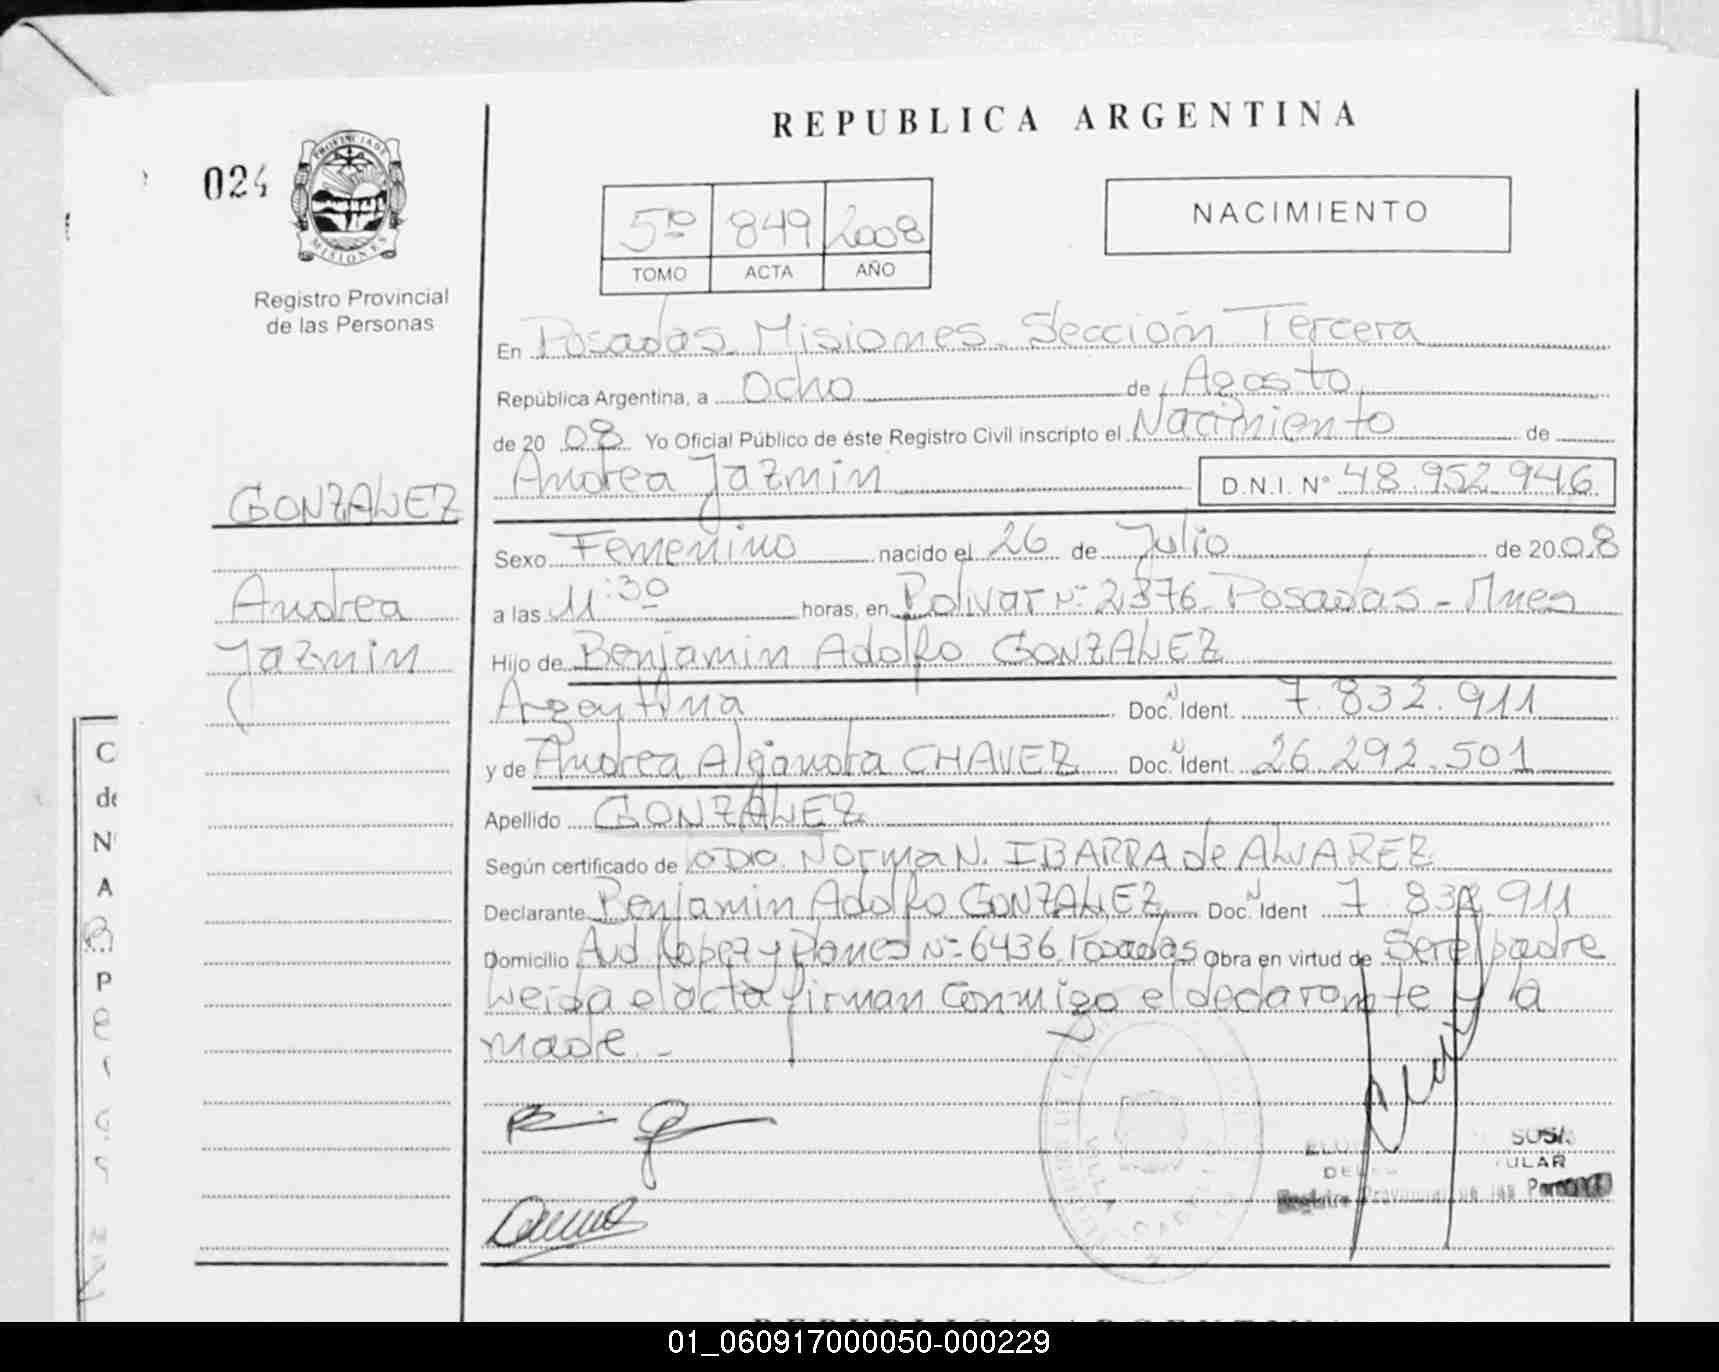 REPUBLICA ARGENTINA
024
PROVINCIA DE
MISIONES
Registro Provincial
de las Personas
5to 849 2008
TOMO ACTA AÑO
NACIMIENTO
En Posadas Misiones. Sección Tercera
República Argentina, a Ocho de Agosto
de 20 08 Yo Oficial Público de éste Registro Civil inscripto el Nacimiento de
Andrea Jazmin D.N.I. N° 48.952.946
GONZALEZ
Andrea
Jazmin
Sexo Femenino nacido el 26 de Julio de 20 08
a las 11:30 horas, en Bolivar N° 2376 Posadas - Mnes
Hijo de Benjamin Adolfo GONZALEZ
Argentina Doc. Ident. 7.832.911
y de Andrea Alejandra CHAVEZ Doc. Ident. 26.292.501
Apellido GONZALEZ
Según certificado de Norma N. IBARRA de ALVAREZ
Declarante Benjamin Adolfo GONZALEZ Doc. Ident 7.832.911
Domicilio Avd Lopez y Planes N° 6436 Posadas Obra en virtud de Ser el padre
Leida el acta firman conmigo el declarante y la
madre.-
SUSA
DE ULAR
Registro Provincial de las
C
de
N
A
P
01_060917000050-000229